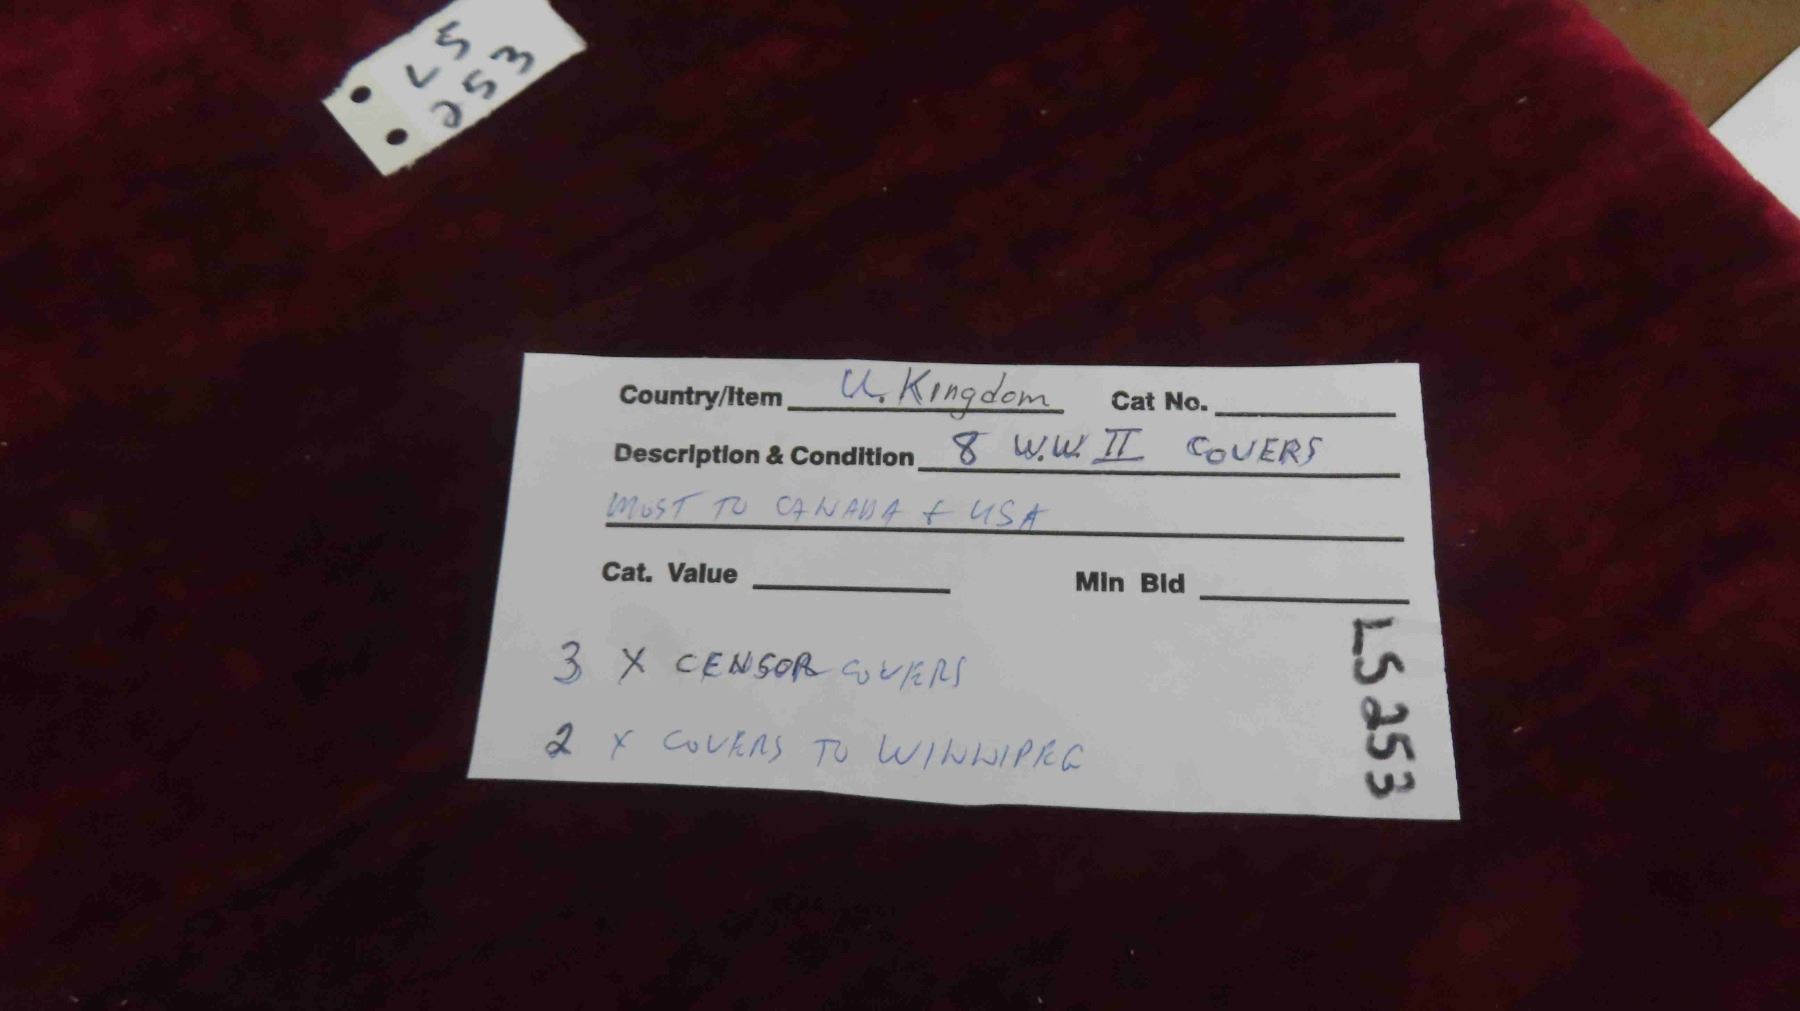 LS
253
Country/Item U. Kingdom Cat No.
Description & Condition 8 W.W. II COVERS
MOST TO CANADA + USA
Cat. Value Min Bid
3 X CENSOR COVERS
2 X COVERS TO WINNIPEG
LS 253